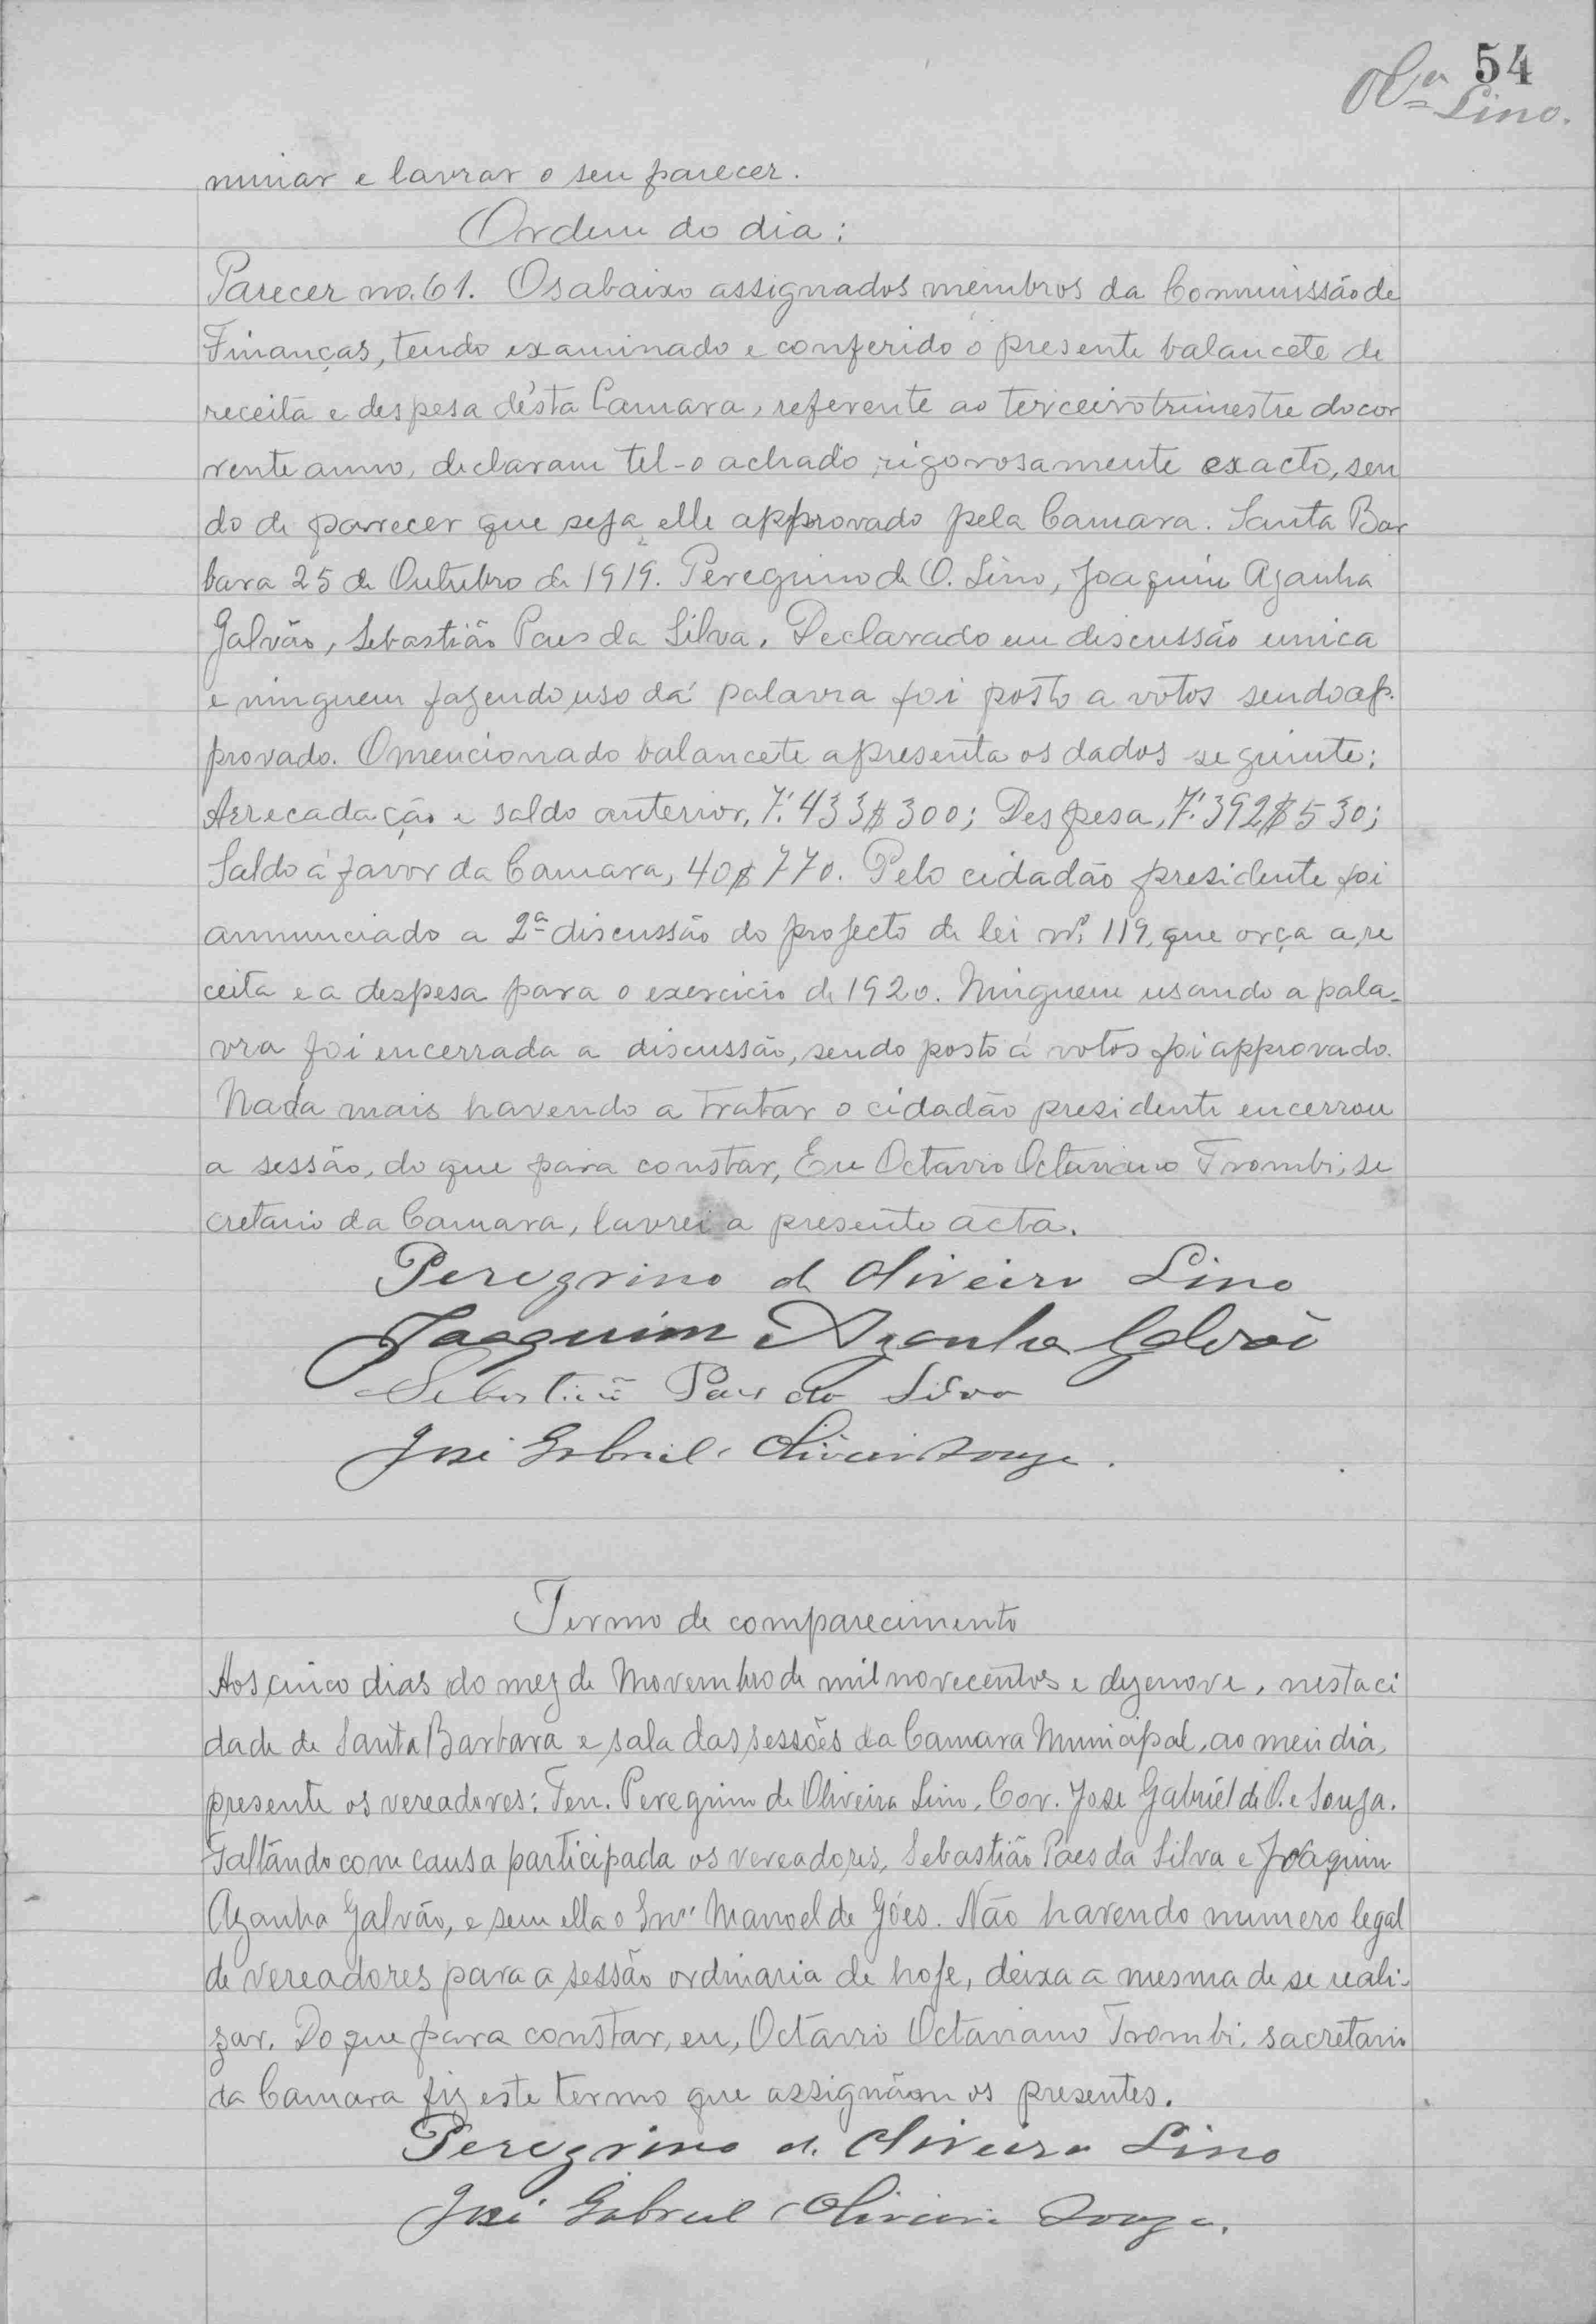 54
Olvª Lino.
minar e lavrar o seu parecer.
Ordem do dia:
Parecer no. 61. Os abaixo assignados membros da Commissão de
Finanças, tendo examinado e conferido o presente balancete de
receita e despesa d'esta Camara, referente ao terceiro trimestre do cor
rente anno, declaram tel-o achado rigorosamente exacto, sen
do de parecer que seja elle approvado pela Camara. Santa Bar
bara 25 de Outubro de 1919. Peregrino de O. Lino, Joaquim Azanha
Galvão, Sebastião Paes da Silva. Declarado em discussão unica
e ninguem fazendo uso da palavra foi posto a votos sendo ap.
provado. O mencionado balancete apresenta os dados seguinte:
Arrecadação e saldo anterior, 7:433$300; Despesa, 7:392$530;
Saldo á favor da Camara, 40$770. Pelo cidadão presidente foi
annunciado a 2ª discussão do projecto de lei nº 119, que orça a re
ceita e a despesa para o exercicio de 1920. Ninguem usando a pala-
vra foi encerrada a discussão, sendo posto á votos foi approvado.
Nada mais havendo a tratar o cidadão presidente encerrou
a sessão, do que para constar, Eu Octavio Octaviano Trombi, se
cretario da Camara, lavrei a presente acta.
Peregrino de Oliveira Lino
Joaquim Azanha Galvão
Sebastião Paes da Silva
José Gabriel Oliveira Souza.
Termo de comparecimento
Aos cinco dias do mez de Novembro de mil novecentos e dezenove, nesta ci
dade de Santa Barbara e sala das sessões da Camara Municipal, ao meio dia,
presente os vereadores: Ten. Peregrino de Oliveira Lino, Cor. José Gabriel de O. e Souza.
Faltando com causa participada os vereadores, Sebastião Paes da Silva e Joaquim
Azanha Galvão, e sem ella o Snr Manoel de Góes. Não havendo numero legal
de vereadores para a sessão ordinaria de hoje, deixa a mesma de se reali-
zar. Do que para constar, eu, Octavio Octaviano Trombi, sacretario
da Camara fiz este termo que assignam os presentes.
Peregrino de Oliveira Lino
José Gabriel Oliveira Souza.